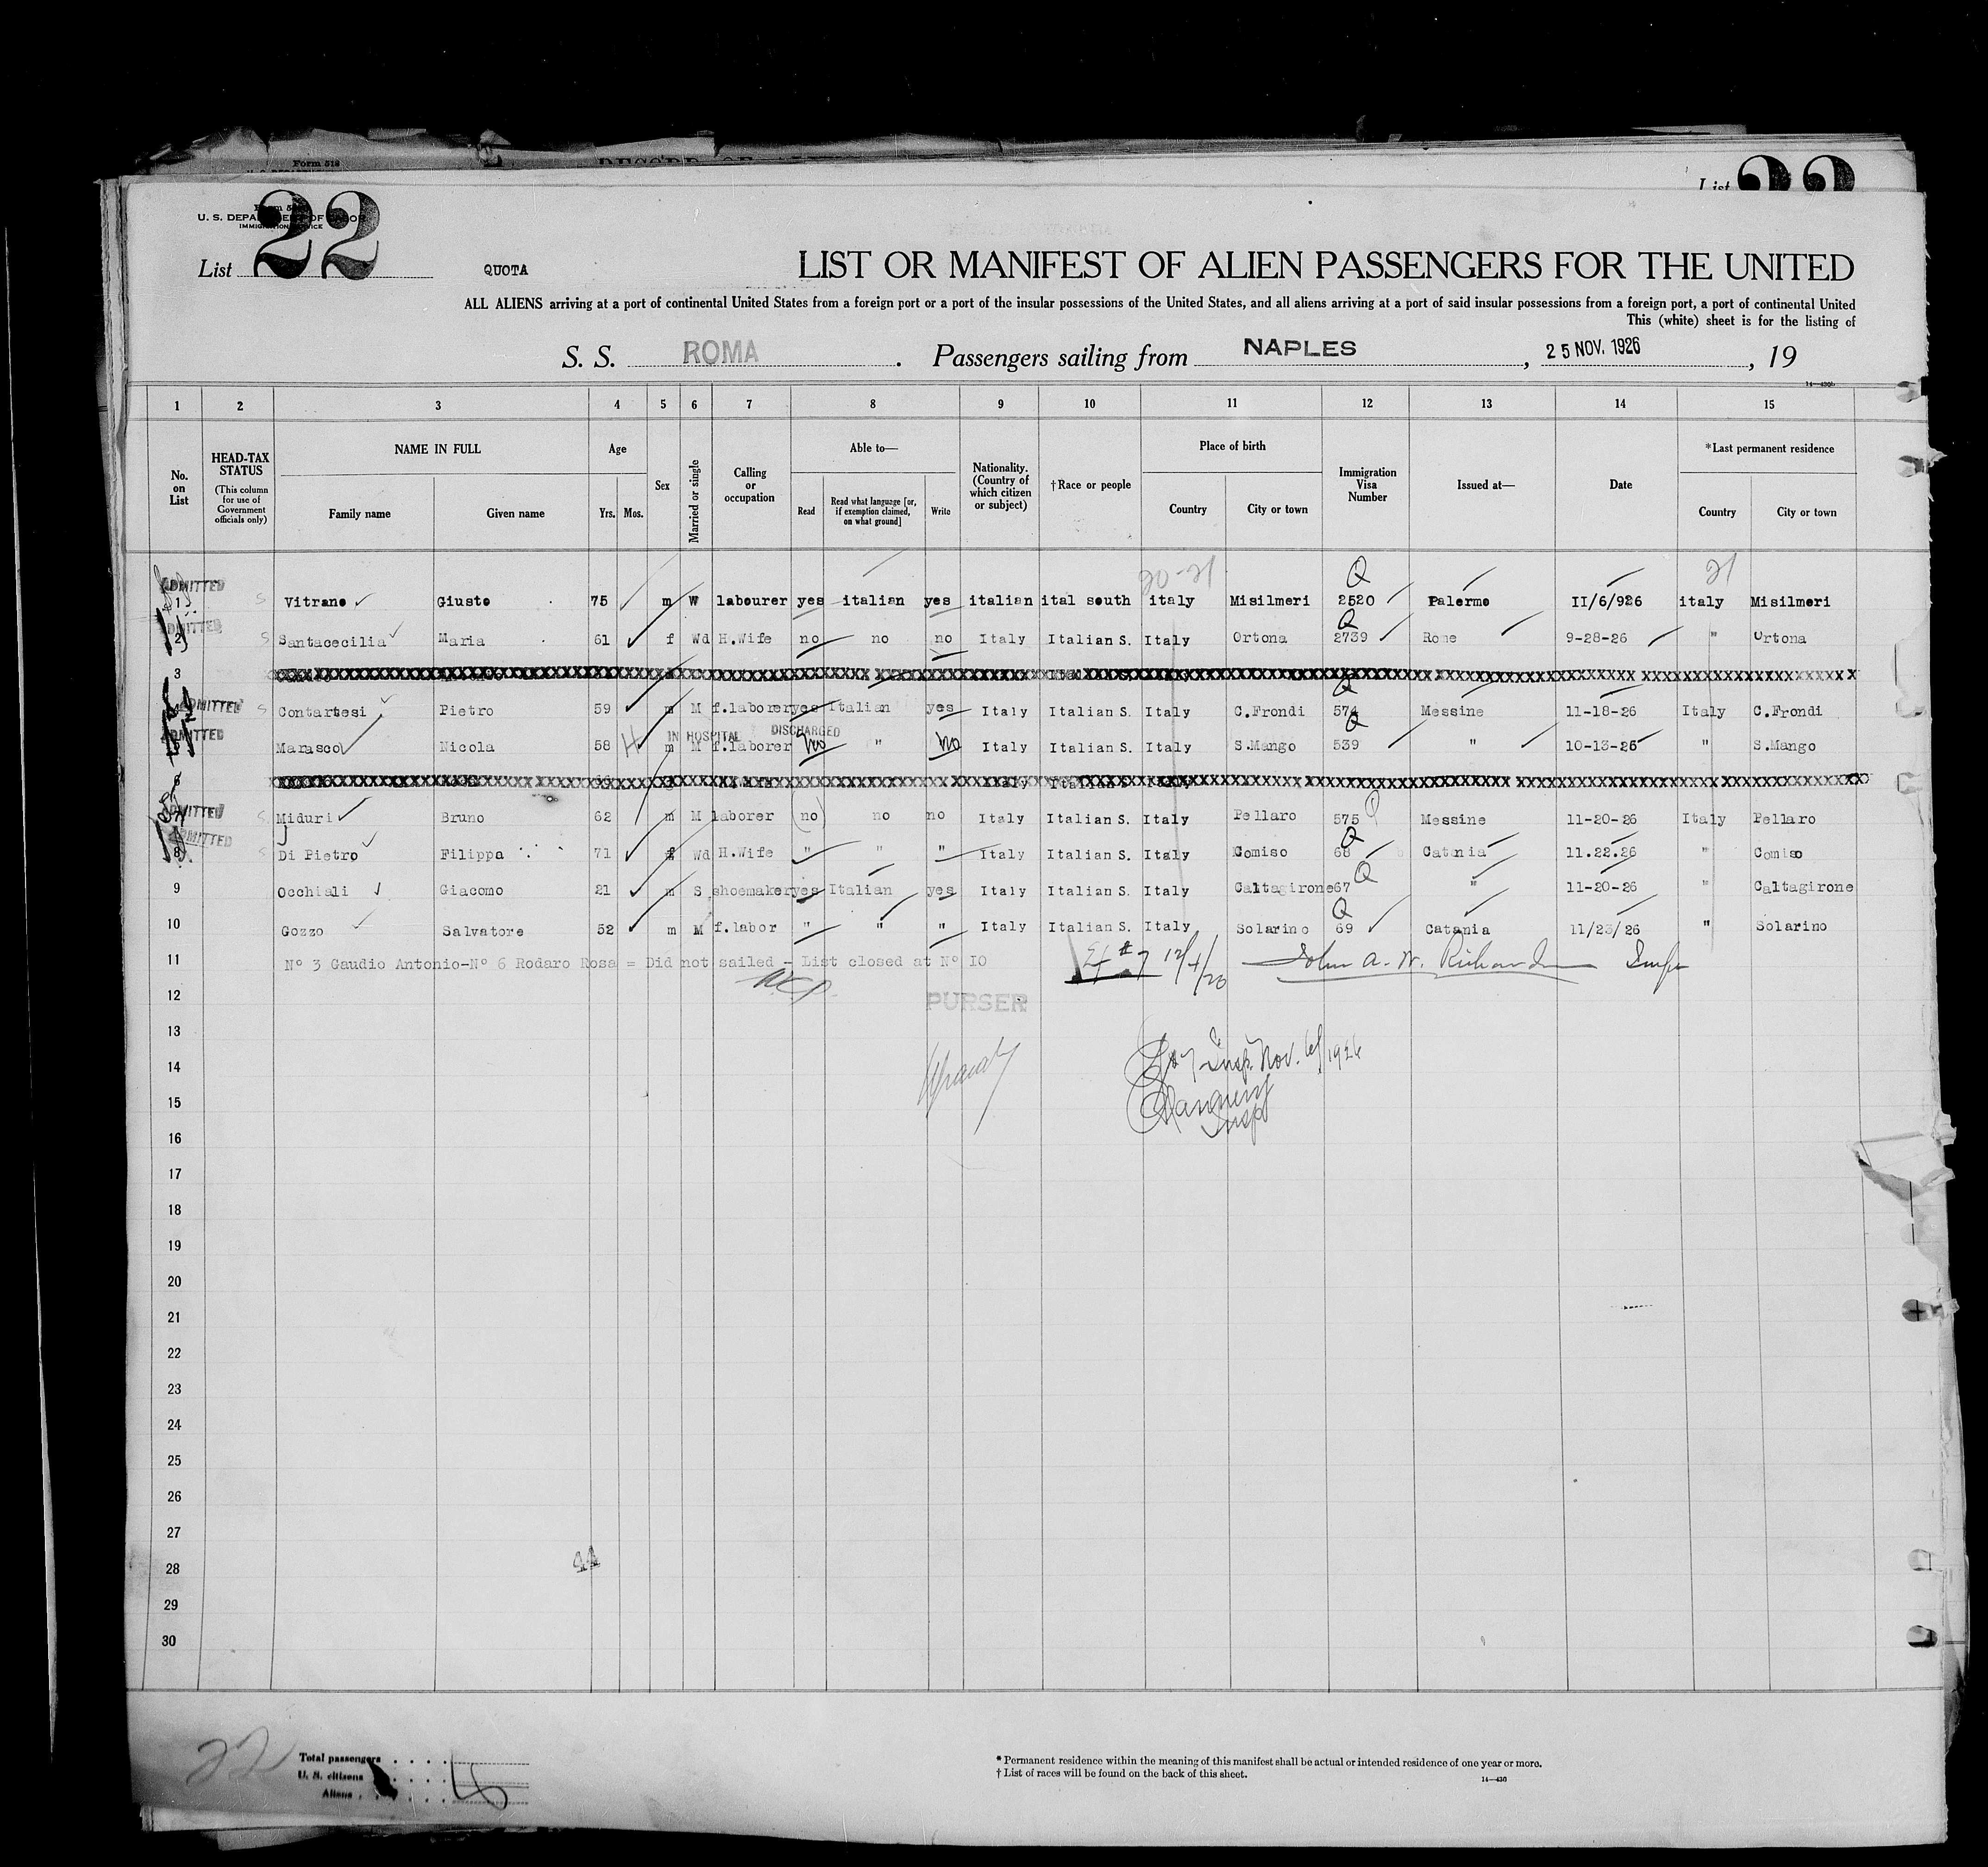 Form 519
List 22
Form 5
U. S. DEPARTMENT OF LABOR
IMMIGRATION SERVICE
List 22
QUOTA
LIST OR MANIFEST OF ALIEN PASSENGERS FOR THE UNITED
ALL ALIENS arriving at a port of continental United States from a foreign port or a port of the insular possessions of the United States, and all aliens arriving at a port of said insular possessions from a foreign port, a port of continental United
This (white) sheet is for the listing of
S. S. ROMA. Passengers sailing from NAPLES, 25 NOV. 1926, 19
14—430b
1 2 3 4 5 6 7 8 9 10 11 12 13 14 15
No. on List
HEAD-TAX STATUS (This column for use of Government officials only)
NAME IN FULL Family name Given name
Age Yrs. Mos.
Sex
Married or single
Calling or occupation
Able to— Read Read what language [or, if exemption claimed, on what ground] Write
Nationality. (Country of which citizen or subject)
†Race or people
Place of birth Country City or town
Immigration Visa Number
Issued at—
Date
*Last permanent residence Country City or town
20-21 Q 21
ADMITTED
1 S Vitrano Giusto 75 m W labourer yes italian yes italian ital south italy Misilmeri 2520 Palermo II/6/926 italy Misilmeri
ADMITTED Q
2 S Santacecilia Maria 61 f Wd H.Wife no no no Italy Italian S. Italy Ortona 2739 Rome 9-28-26 " Ortona
3
ADMITTED Q
S Contartesi Pietro 59 m M f.laborer yes Italian yes Italy Italian S. Italy C.Frondi 574 Messine 11-18-26 Italy C.Frondi
ADMITTED H IN HOSPITAL DISCHARGED Q
Marasco Nicola 58 m M f.laborer No " No Italy Italian S. Italy S.Mango 539 " 10-13-26 " S.Mango
6 Italy Italian S
ADMITTED
S Miduri Bruno 62 m M laborer (no) no no Italy Italian S. Italy Pellaro 575 Q Messine 11-20-26 Italy Pellaro
ADMITTED Q
8 S Di Pietro Filippa 71 f Wd H.Wife " " " Italy Italian S. Italy Comiso 68 Catania 11.22.26 " Comiso
9 Occhiali Giacomo 21 m S shoemaker yes Italian yes Italy Italian S. Italy Caltagirone 67 Q " 11-20-26 " Caltagirone
Q
10 Gozzo Salvatore 52 m M f.labor " " " Italy Italian S. Italy Solarino 69 Catania 11/23/26 " Solarino
11 Nº 3 Gaudio Antonio-Nº 6 Rodaro Rosa = Did not sailed - List closed at Nº IO
John A. W. Richards Insp
12 PURSER
13
14 Insp. Nov. 1926
15
Insp
16
17
18
19
20
21
22
23
24
25
26
27
28
29
30
22
Total passengers
U. S. citizens
Aliens
* Permanent residence within the meaning of this manifest shall be actual or intended residence of one year or more.
† List of races will be found on the back of this sheet.
14—430